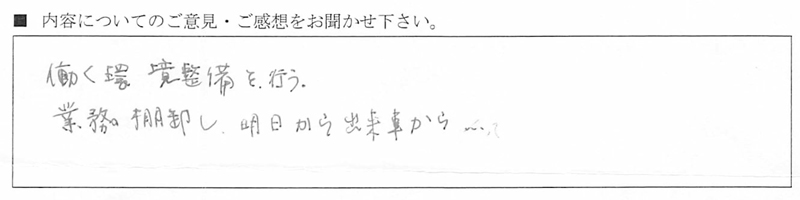 ■ 内容についてのご意見・ご感想をお聞かせ下さい。
働く環境整備を行う。
業務棚卸し、明日から出来車から…